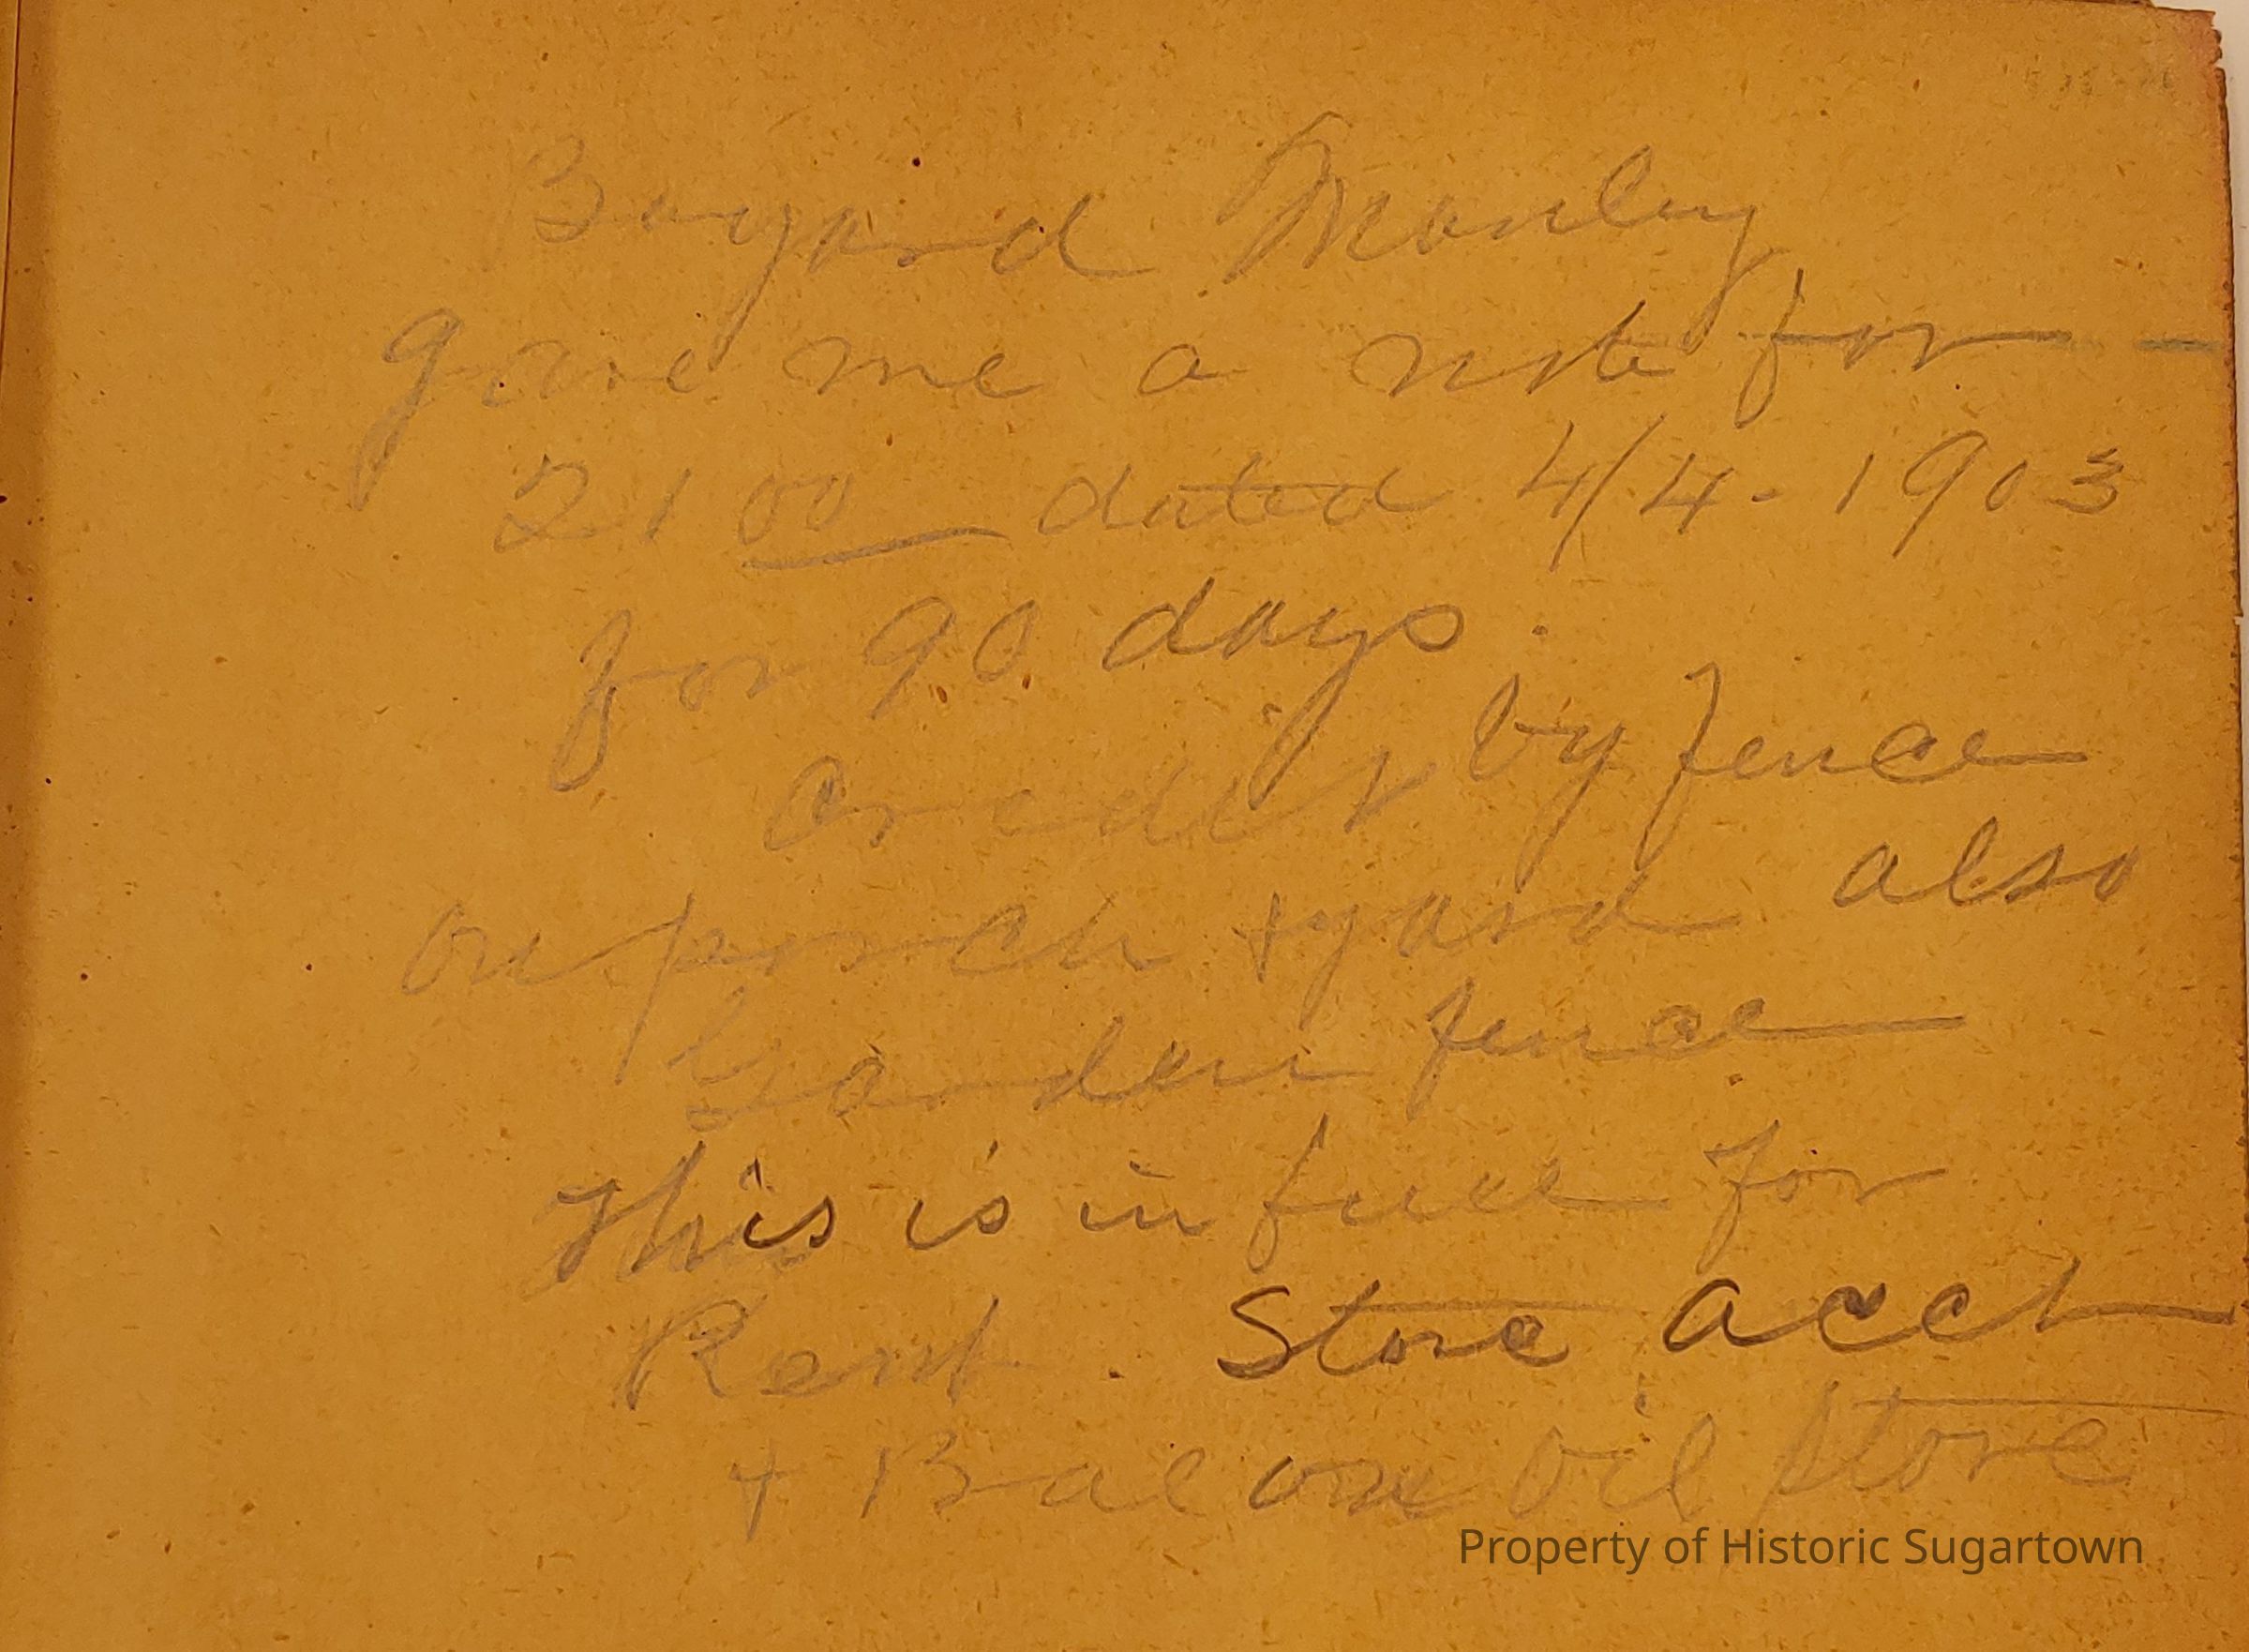 Bayard Manley
gave me a note for —
21 00 dated 4/4-1903
for 90 days.
credit by fence
on porch & yard also
Garden fence
This is in full for
Rent. Store acct
& Bal on Oil Store
Property of Historic Sugartown